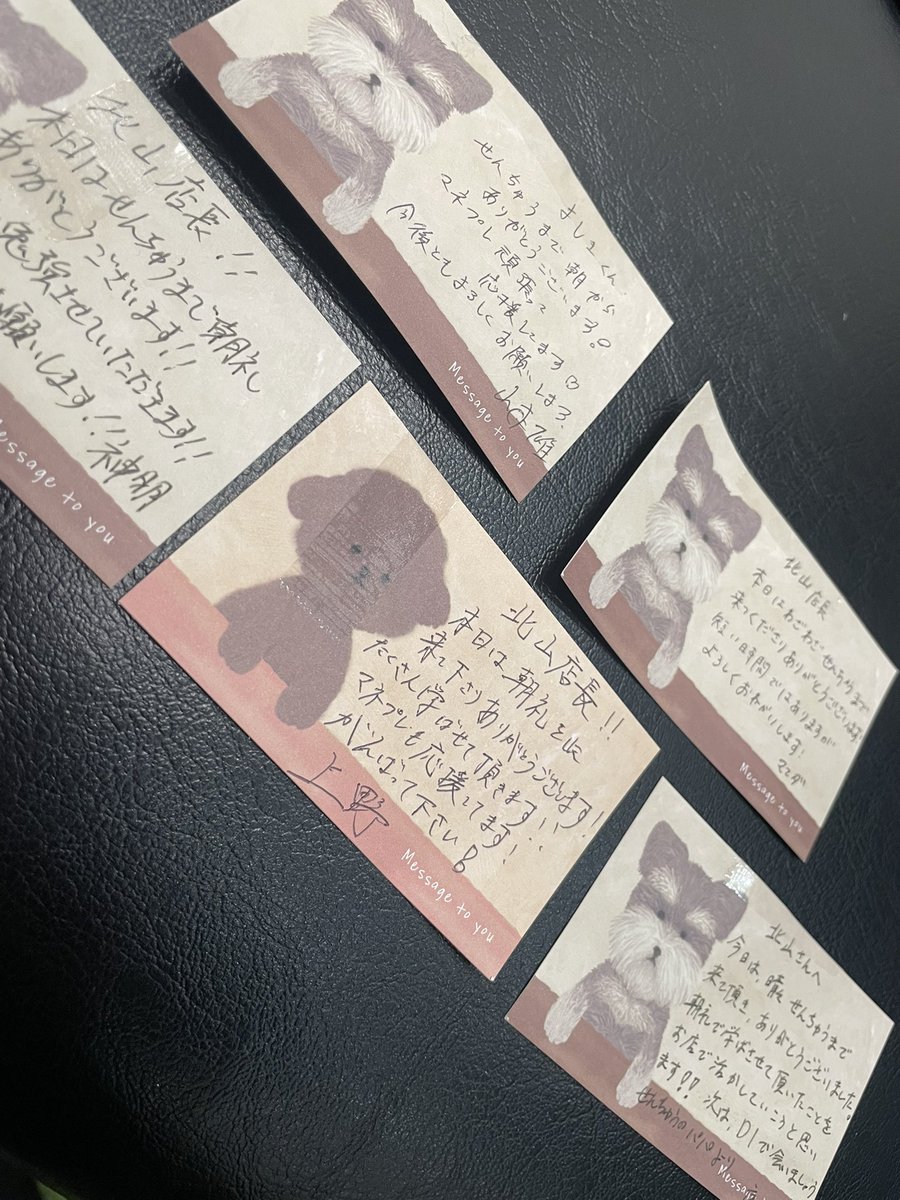 北山店長!!
本日はせんちゅうまで朝礼
ありがとうございます!!
勉強させていただきます!!
願いします!!神朋
Message to you
よしきくん
せんちゅうまで朝から
ありがとうございます。
マネプレ頑張って
応援してます♡
今後ともよろしくお願いします。
Message to you
北山店長!!
本日は朝礼を
来て下さりありがとうございます!
たくさん学ばせて頂きます!!
マネプレも応援してます!
がんばって下さい!
上野
Message to you
北山店長
本日はわざわざせんちゅうまで
来てくださりありがとうございます!
短い時間ではありますが
よろしくおねがいします!
Message to you
北山さんへ
今日は、せんちゅうまで
来て頂き、ありがとうございました。
朝礼で学ばさせて頂いたことを
お店で活かしていこうと思い
ます!! 次は、D1で会いましょう
せんちゅうの より
Messa